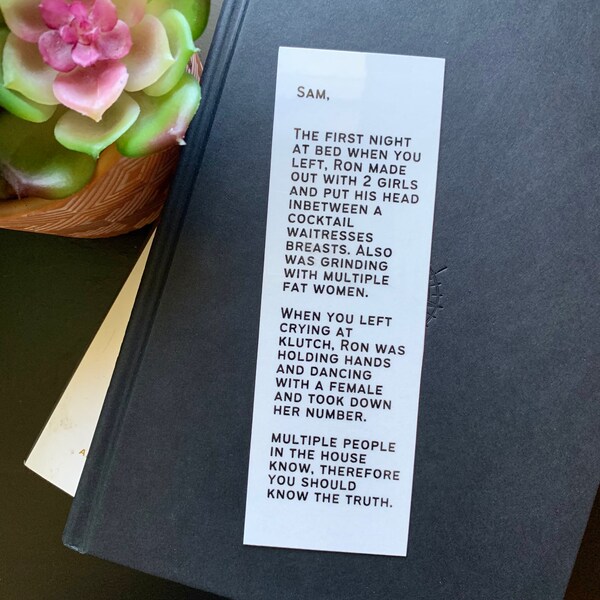 SAM,
THE FIRST NIGHT
AT BED WHEN YOU
LEFT, RON MADE
OUT WITH 2 GIRLS
AND PUT HIS HEAD
INBETWEEN A
COCKTAIL
WAITRESSES
BREASTS. ALSO
WAS GRINDING
WITH MULTIPLE
FAT WOMEN.
WHEN YOU LEFT
CRYING AT
KLUTCH, RON WAS
HOLDING HANDS
AND DANCING
WITH A FEMALE
AND TOOK DOWN
HER NUMBER.
MULTIPLE PEOPLE
IN THE HOUSE
KNOW, THEREFORE
YOU SHOULD
KNOW THE TRUTH.